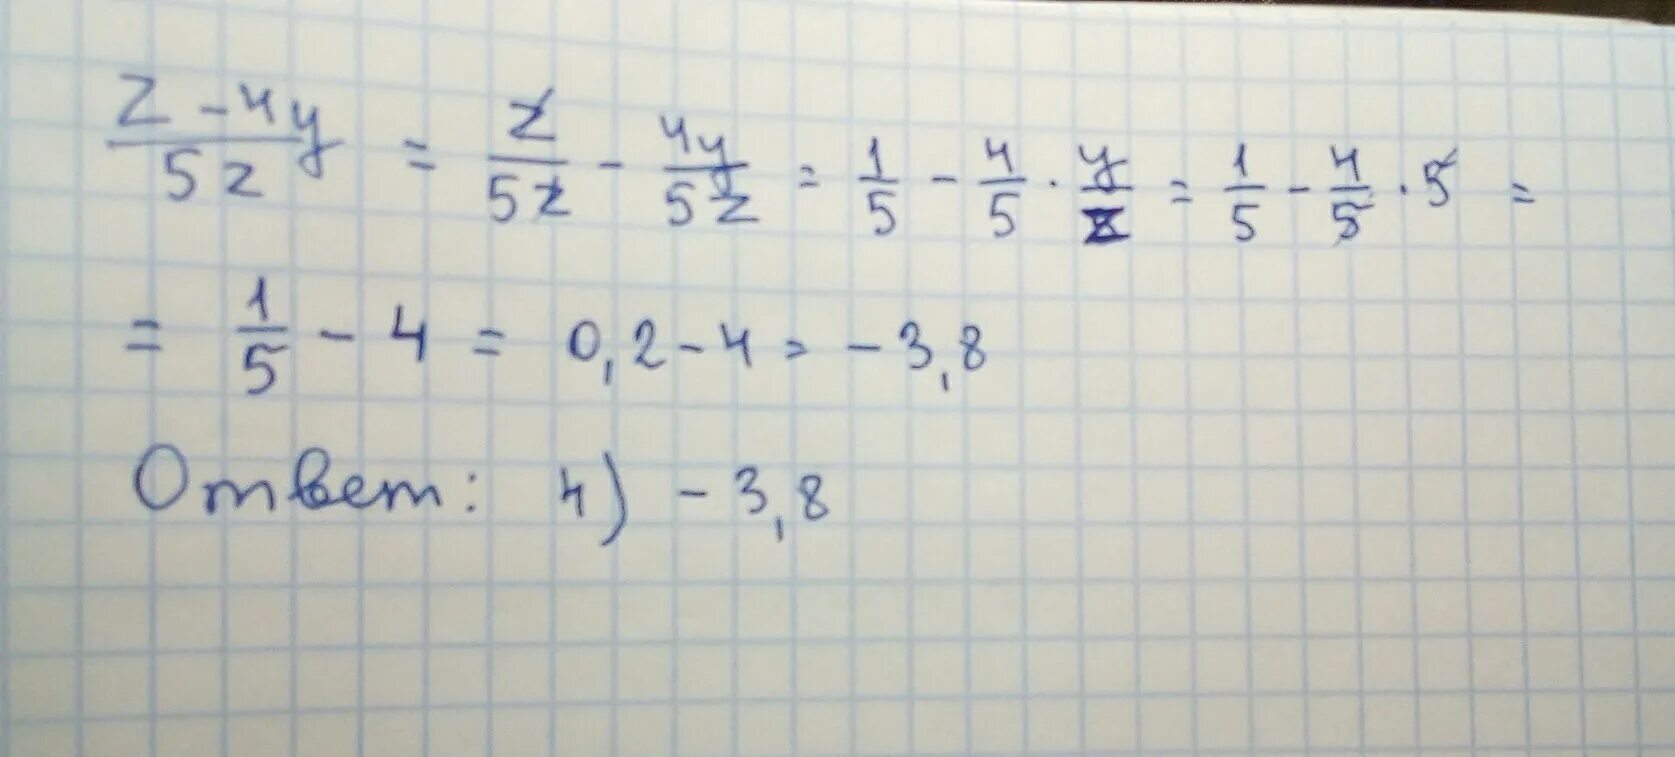 z - 4y / 5z = z / 5z - 4y / 5z = 1/5 - 4/5 · y/z = 1/5 - 4/5 · 5 =
= 1/5 - 4 = 0,2 - 4 = -3,8
Ответ: 4) -3,8